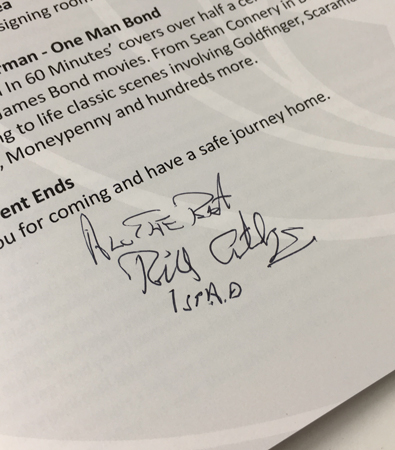 ea
signing room
rman - One Man Bond
d In 60 Minutes' covers over half a ce
James Bond movies. From Sean Connery in
ng to life classic scenes involving Goldfinger, Scaram
, Moneypenny and hundreds more.
ent Ends
ou for coming and have a safe journey home.
ALL THE BEST
Bill
1ST A.D